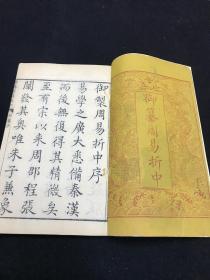 御纂周易折中
御製周易折中序
易學之廣大悉備秦漢
而後無復得其精微矣
至有宋以來周邵程張
闡發其奥唯朱子兼象